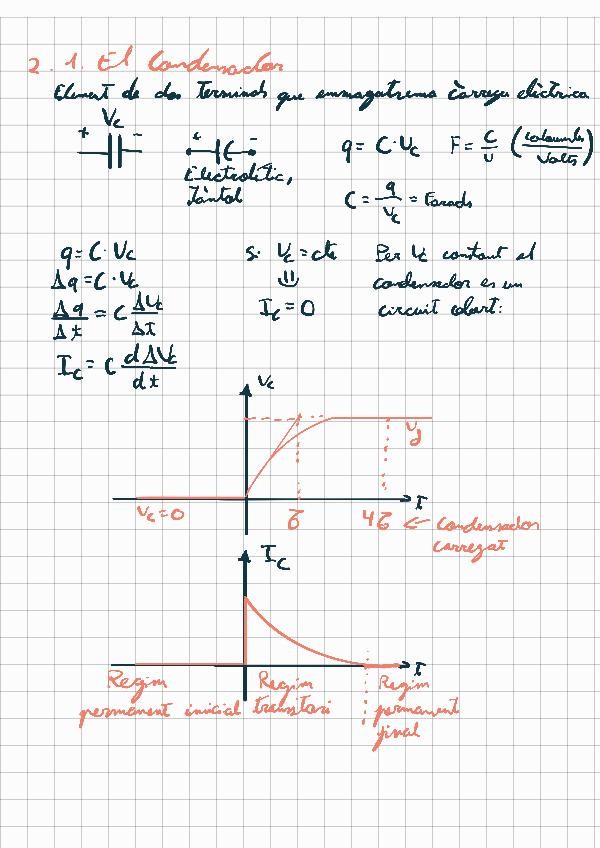 2.1. El Condensador
Element de dos terminals que emmagatzema càrrega elèctrica
Vc
+ -
+ -
Electrolític,
Tàntal
q = C·Vc F = C/V (Coulombs/Volts)
C = q/Vc = Farads
q = C·Vc
Δq = C·Vc
Δq/Δt = C ΔVc/Δt
Ic = C dΔVc/dt
si Vc = cte
Ic = 0
Per Vc constant el
condensador es un
circuit obert:
Vc
Vg
Vc = 0
τ
4τ
t
← Condensador
carregat
Ic
t
Regim
permanent inicial
Regim
transitori
Regim
permanent
final